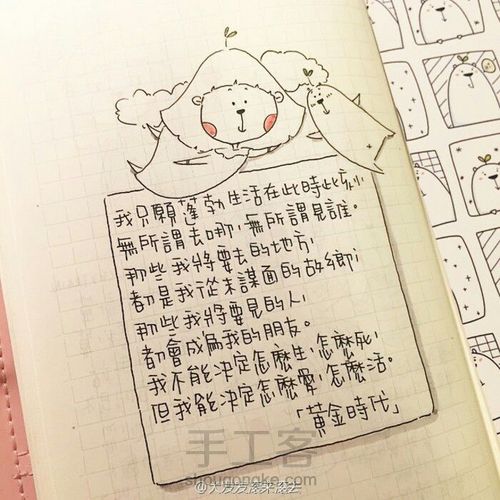 我只願蓬勃生活在此時此刻，
無所謂去哪，無所謂見誰。
那些我將要去的地方，
都是我從未謀面的故鄉，
那些我將要見的人，
都會成為我的朋友。
我不能決定怎麼生，怎麼死，
但我能決定怎麼愛，怎麼活。
「黃金時代」
手工客
shougongke.com